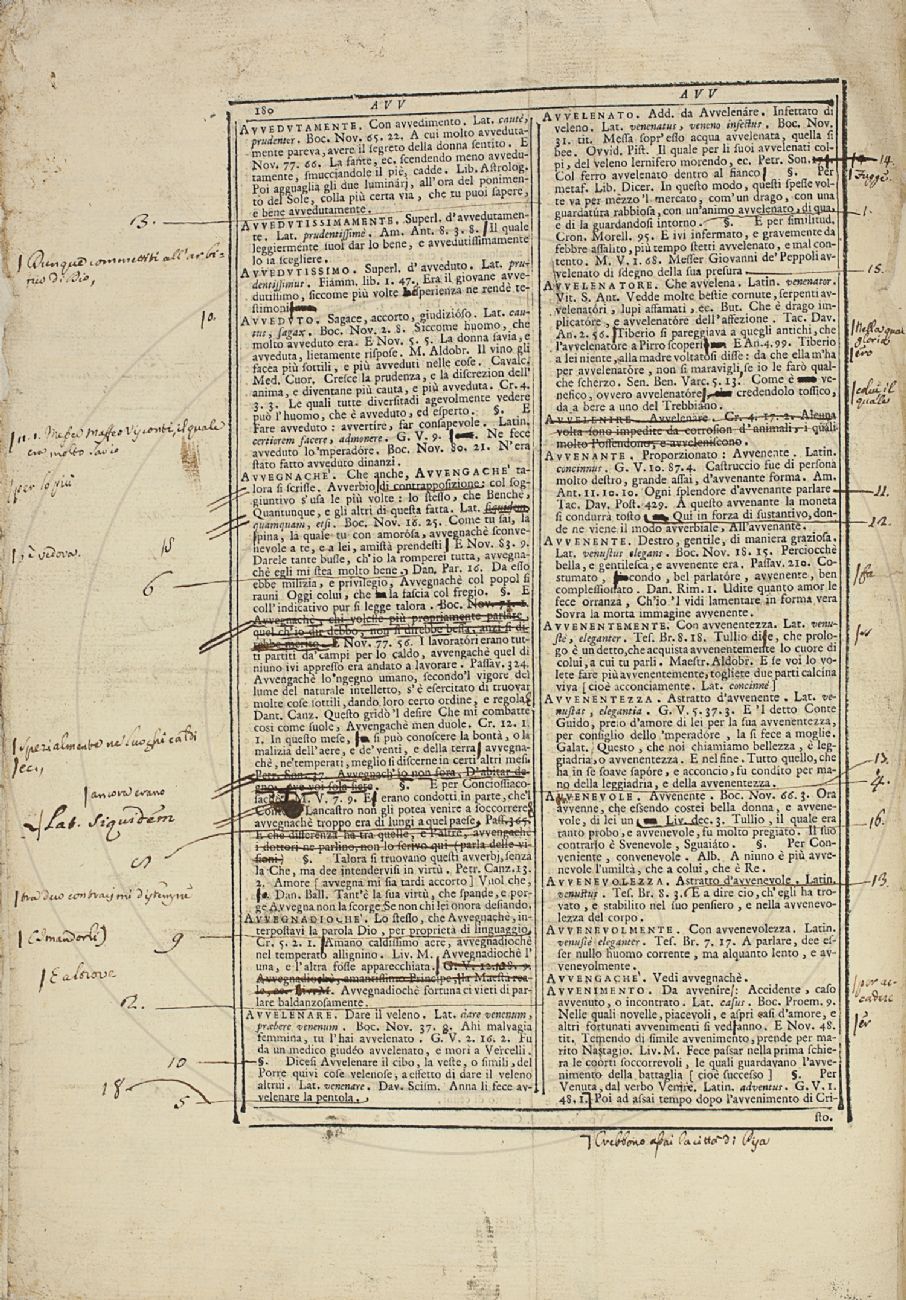 180 AVV
AVVEDVTAMENTE. Con avvedimento. Lat. cautè,
prudenter. Boc. Nov. 65. 22. A cui molto avveduta-
mente pareva, avere il segreto della donna sentito. E
Nov. 77. 66. La fante, ec. scendendo meno avvedu-
tamente, smucciandole il piè, cadde. Lib. Astrolog.
Poi agguaglia gli due luminárj, all'ora del ponimen-
to del Sole, colla più certa via, che tu puoi sapere,
e bene avvedutamente.
AVVEDVTISSIMAMENTE. Superl. d'avvedutamen-
te. Lat. prudentissimè. Am. Ant. 8. 3. 8. Il quale
leggiermente suol dar lo bene, e avvedutissimamente
lo sa scegliere.
AVVEDVTISSIMO. Superl. d'avveduto. Lat. pru-
dentissimus. Fiamm. lib. 1. 47. Era il giovane avve-
dutissimo, siccome più volte sperienza ne rendè te-
stimoni
AVVEDVTO. Sagace, accorto, giudizióso. Lat. cau-
tus, sagax. Boc. Nov. 2. 8. Siccome huomo, che
molto avveduto era. E Nov. 5. 5. La donna savia, e
avveduta, lietamente rispose. M. Aldobr. Il vino gli
facea più sottili, e più avveduti nelle cose. Cavalc.
Med. Cuor. Cresce la prudenza, e la discrezion dell'
anima, e diventane più cauta, e più avveduta. Cr. 4.
3. 3. Le quali tutte diversitadi agevolmente vedere
può l'huomo, che è avveduto, ed esperto. §. E
Fare avveduto: avvertire, far consapevole. Latin.
certiorem facere, admonere. G. V. 9. Ne fece
avveduto lo'mperadóre. Boc. Nov. 80. 21. N'era
stato fatto avveduto dinanzi.
AVVEGNACHE'. Che anche, AVVENGACHE' ta-
lora si scrisse. Avverbio di contrapposizione: col sog-
giuntivo s'usa le più volte: lo stesso, che Benchè,
Quantunque, e gli altri di questa fatta. Lat.
quamquam, etsi. Boc. Nov. 16. 25. Come tu sai, la
spina, la quale tu con amorósa, avvegnachè sconve-
nevole a te, e a lei, amistà prendesti E Nov. 83. 9.
Darele tante busse, ch'io la romperei tutta, avvegna-
chè egli mi stea molto bene. Dan. Par. 16. Da esso
ebbe milizia, e privilegio, Avvegnachè col popol si
rauni Oggi colui, che la fascia col fregio. §. E
coll'indicativo pur si legge talora. Boc. Nov.
Avvegnachè, chi volesse più propriamente parlare,
quel ch'io dir debbo, non si direbbe beffa, anzi si di-
rebbe merito. E Nov. 77. 56. I lavoratori erano tut-
ti partiti da' campi per lo caldo, avvengachè quel dì
niuno ivi appresso era andato a lavorare. Passav. 324.
Avvengachè lo'ngegno umano, secondo'l vigore del
lume del naturale intelletto, s'è esercitato di truovar
molte cose sottili, dando loro certo ordine, e regola.
Dant. Canz. Questo gridò'l desire Che mi combatte
così come suole, Avvengachè men duole. Cr. 12. 1.
1. In questo mese, si può conoscere la bontà, o la
malizia dell'aere, e de' venti, e della terra avvegna-
chè, ne' temperati, meglio si discerne in certi altri mesi.
Petr. Son. 37. Avvegnach'io non fora, D'abitar de-
gno, ove voi sola siete. §. E per Conciossiaco-
sachè M. V. 7. 9. E erano condotti in parte, che'l
Lancastro non gli potea venire a soccorrere,
avvegnachè troppo era di lungi a quel paese. Pass. 365.
E che differenza ha tra quelle, e l'altre, avvegnachè
i dottori ne parlino, non lo scrivo qui (parla delle vi-
sioni) §. Talora si truovano questi avverbj, senza
la Che, ma dee intendervisi in virtù. Petr. Canz. 13.
2. Amore [avvegna mi sia tardi accorto] Vuol che,
Dan. Ball. Tant'è la sua virtù, che spande, e por-
ge Avvegna non la scorge, Se non chi lei onora desiando.
AVVEGNADIOCHE'. Lo stesso, che Avvegnachè, in-
terpostavi la parola Dio, per proprietà di linguaggio.
Cr. 5. 2. 1. Amano caldissimo aere, avvegnadiochè
nel temperato allignino. Liv. M. Avvegnadiochè l'
una, e l'altra fosse apparecchiata. G. V. 12. 108. 9.
Avvegnadiochè, amantissimo Principe, la Maestà rea-
le, ec. Avvegnadiochè fortuna ci vieti di par-
lare baldanzosamente.
AVVELENARE. Dare il veleno. Lat. dare venenum,
præbere venenum. Boc. Nov. 37. 8. Ahi malvagia
femmina, tu l'hai avvelenato. G. V. 2. 16. 2. Fu
da un medico giudéo avvelenato, e morì a Vercelli.
§. Dicesi Avvelenare il cibo, la veste, o simili, del
Porre quivi cose velenose, a effetto di dare il veleno
altrui. Lat. venenare. Dav. Scism. Anna li fece av-
velenare la pentola.
AVV
AVVELENATO. Add. da Avvelenáre. Infettato di
veleno. Lat. venenatus, veneno infectus. Boc. Nov.
31. tit. Messa sopr'esso acqua avvelenata, quella si
bee. Ovvid. Pist. Il quale per li suoi avvelenati col-
pi, del veleno lernifero morendo, ec. Petr. Son.
Col ferro avvelenato dentro al fianco §. Per
metaf. Lib. Dicer. In questo modo, questi spesse vol-
te va per mezzo'l mercato, com'un drago, con una
guardatúra rabbiosa, con un'animo avvelenato, di qua,
e di la guardandosi intorno. §. E per similitud.
Cron. Morell. 95. E ivi infermato, e gravemente da
febbre assalito, più tempo stetti avvelenato, e mal con-
tento. M. V. 1. 68. Messer Giovanni de' Peppoli av-
velenato di sdegno della sua presura
AVVELENATORE. Che avvelena. Latin. venenator.
Vit. S. Ant. Vedde molte bestie cornute, serpenti av-
velenatóri, lupi affamati, ec. But. Che è drago im-
plicatóre, e avvelenatóre dell'affezione. Tac. Dav.
An. 2. 56. Tiberio si pareggiava a quegli antichi, che
l'avvelenatóre a Pirro scoperi E An. 4. 99. Tiberio
a lei niente, alla madre voltatosi disse: da che ella m'ha
per avvelenatóre, non si maravigli, se io le farò qual-
che scherzo. Sen. Ben. Varc. 5. 13. Come è ve-
nefico, ovvero avvelenatóre, credendolo tossico,
da a bere a uno del Trebbiano.
AVVELENIRE. Avvelenare. Cr. 4. 17. 2. Alcuna
volta sono impedite da corrosion d'animali, i quali
molto l'offendono, e avveleniscono.
AVVENANTE. Proporzionato: Avvenente. Latin.
concinnus. G. V. 10. 87. 4. Castruccio fue di persona
molto destro, grande assai, d'avvenante forma. Am.
Ant. 11. 10. 10. Ogni splendore d'avvenante parlare
Tac. Dav. Post. 429. A questo avvenante la moneta
si condurrà tosto Qui in forza di sustantivo, don-
de ne viene il modo avverbiale, All'avvenante.
AVVENENTE. Destro, gentile, di maniera graziosa.
Lat. venustus elegans. Boc. Nov. 18. 15. Perciocchè
bella, e gentilesca, e avvenente era. Passav. 210. Co-
stumato, econdo, bel parlatóre, avvenente, ben
complessionato. Dan. Rim. 1. Udite quanto amor le
fece orranza, Ch'io'l vidi lamentare in forma vera
Sovra la morta immagine avvenente.
AVVENENTEMENTE. Con avvenentezza. Lat. venu-
stè, eleganter. Tes. Br. 8. 18. Tullio dise, che prolo-
go è un detto, che acquista avvenentemente lo cuore di
colui, a cui tu parli. Maestr. Aldobr. E se voi lo vo-
lete fare più avvenentemente, togliete due parti calcina
viva [cioè acconciamente. Lat. concinnè]
AVVENENTEZZA. Astratto d'avvenente. Lat. ve-
nustas, elegantia. G. V. 5. 37. 3. E'l detto Conte
Guido, preso d'amore di lei per la sua avvenentezza,
per consiglio dello'mperadóre, la si fece a moglie.
Galat. Questo, che noi chiamiamo bellezza, è leg-
giadria, o avvenentezza. E nel fine. Tutto quello, che
ha in se soave sapóre, e acconcio, fu condito per ma-
no della leggiadria, e della avvenentezza.
AVVENEVOLE. Avvenente. Boc. Nov. 66. 3. Ora
avvenne, che essendo costei bella donna, e avvene-
vole, di lei un Liv. dec. 3. Tullio, il quale era
tanto probo, e avvenevole, fu molto pregiato. Il suo
contrario è Svenevole, Sguaiáto. §. Per Con-
veniente, convenevole. Alb. A niuno è più avve-
nevole l'umiltà, che a colui, che è Re.
AVVENEVOLEZZA. Astratto d'avvenevole. Latin.
venustas. Tes. Br. 8. 3. E a dire ciò, ch'egli ha tro-
vato, e stabilito nel suo pensiero, e nella avvenevo-
lezza del corpo.
AVVENEVOLMENTE. Con avvenevolezza. Latin.
venustè eleganter. Tes. Br. 7. 17. A parlare, dee es-
ser nullo huomo corrente, ma alquanto lento, e av-
venevolmente.
AVVENGACHE. Vedi avvegnachè.
AVVENIMENTO. Da avvenire: Accidente, caso
avvenuto, o incontrato. Lat. casus. Boc. Proem. 9.
Nelle quai novelle, piacevoli, e aspri casi d'amore, e
altri fortunati avvenimenti si vedanno. E Nov. 48.
tit. Temendo di simile avvenimento, prende per ma-
rito Nastagio. Liv. M. Fece passar nella prima schie-
ra le coorti soccorrevoli, le quali guardavano l'avve-
nimento della battaglia [cioè successo] §. Per
Venuta, dal verbo Venire. Latin. adventus. G. V. 1.
48. 1. Poi ad assai tempo dopo l'avvenimento di Cri-
sto.
3.
Dunque commetti all'arbi-
trio di Dio,
10.
11. 1. Messer Maffeo Visconti, il quale
era molto savio
per lo più
è vedova.
15
6
Spezialmente ne' luoghi caldi
ec,
ancora erano
Lat. Siquidem
8
tra due contrasj mi distemprè
(i mandorli)
9
E altrove
2.
10
18
5
14.
Fuggè
1.
15.
Nella qual
gloria
ero
colui il
quale
11.
12.
fa
fer
13.
4.
16.
13.
per ac-
cadere
er
Crebbono assai la città di Pisa